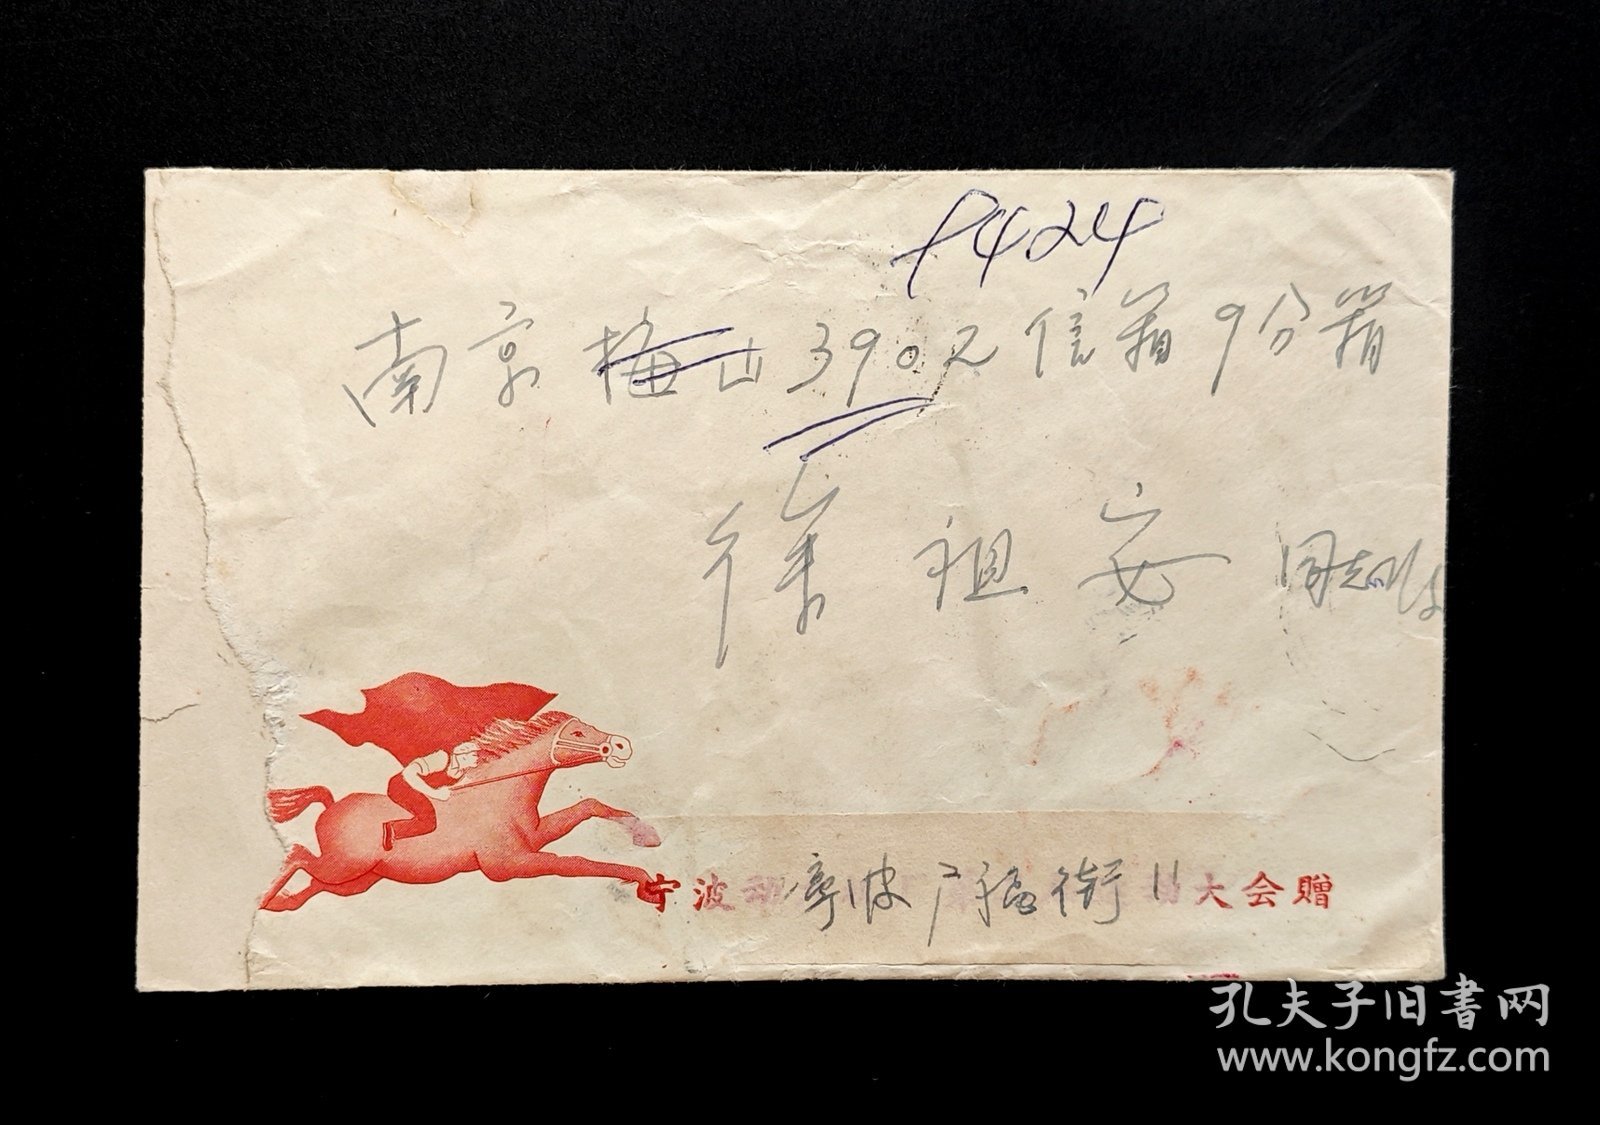 9424
南京梅山3902信箱9分箱
徐祖安 同志收
宁波 大会赠
宁波广福街11
孔夫子旧書网
www.kongfz.com